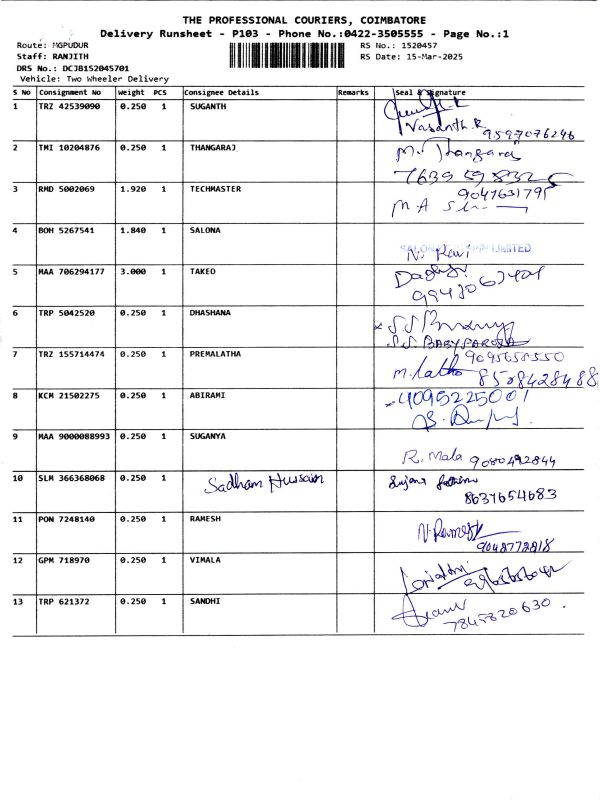 THE PROFESSIONAL COURIERS, COIMBATORE
Delivery Runsheet - P103 - Phone No.:0422-3505555 - Page No.:1
Route: MGPUDUR
RS No.: 1520457
Staff: RANJITH
RS Date: 15-Mar-2025
DRS No.: DCJB152045701
Vehicle: Two Wheeler Delivery
S No Consignment No Weight PCS Consignee Details Remarks Seal & Signature
1 TRZ 42539090 0.250 1 SUGANTH
Vasanth.R 9597076246
2 TMI 10204876 0.250 1 THANGARAJ M. Thangaraj
3 RMD 5002069 1.920 1 TECHMASTER 9047631795
M.A
4 BOH 5267541 1.840 1 SALONA
LIMITED
N. Ravi
5 MAA 706294177 3.000 1 TAKEO
6 TRP 5042520 0.250 1 DHASHANA
S.S. BABY SAROJA
7 TRZ 155714474 0.250 1 PREMALATHA 9095658550
M. Latha 8508428488
8 KCM 21502275 0.250 1 ABIRAMI 4095225001
9 MAA 9000088993 0.250 1 SUGANYA
R. Mala 9080492844
10 SLM 366368068 0.250 1 Sadham Hussain
8637654683
11 PON 7248140 0.250 1 RAMESH N. Ramesh
9048772818
12 GPM 718970 0.250 1 VIMALA
13 TRP 621372 0.250 1 SANDHI
7845820630